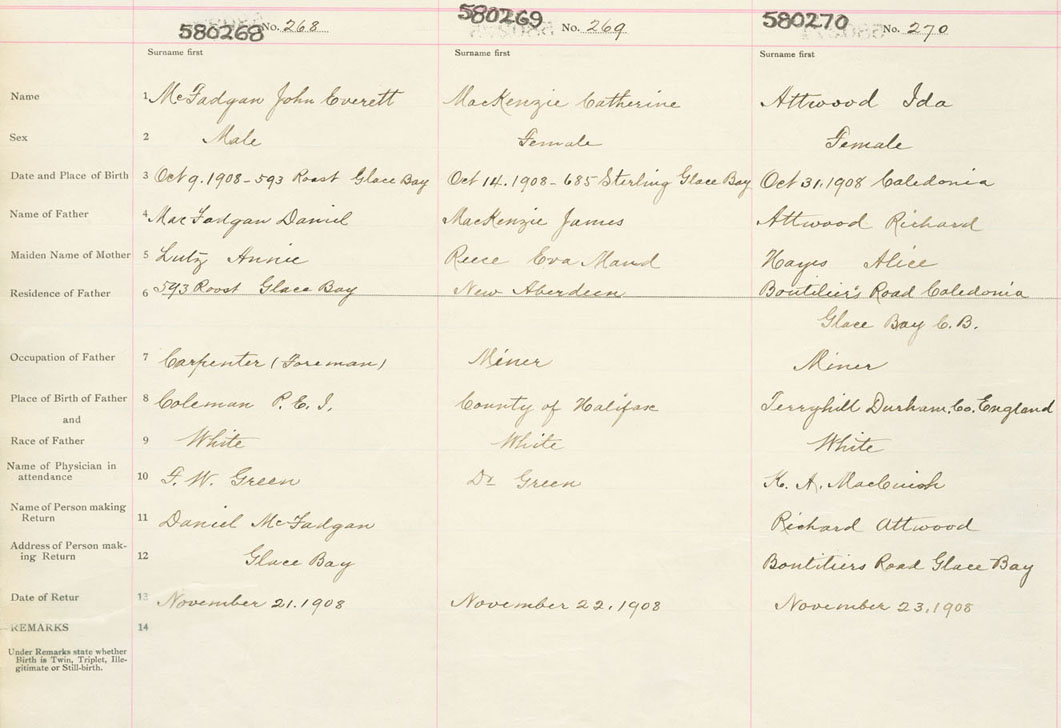 580268 No. 268 580269 No. 269 580270 No. 270
Surname first Surname first Surname first
Name 1 McFadgan John Everett MacKenzie Catherine Attwood Ida
Sex 2 Male Female Female
Date and Place of Birth 3 Oct 9. 1908 - 593 Roost Glace Bay Oct 14. 1908 - 685 Sterling Glace Bay Oct 31, 1908 Caledonia
Name of Father 4 MacFadgan Daniel MacKenzie James Attwood Richard
Maiden Name of Mother 5 Lutz Annie Reece Eva Maud Hayes Alice
Residence of Father 6 593 Roost Glace Bay New Aberdeen Boutilier's Road Caledonia
Glace Bay C.B.
Occupation of Father 7 Carpenter (Foreman) Miner Miner
Place of Birth of Father 8 Coleman P.E.I. County of Halifax Ferryhill Durham. Co. England
and
Race of Father 9 White White White
Name of Physician in
attendance 10 F. W. Green Dr Green K. A. MacCuish
Name of Person making
Return 11 Daniel McFadgan Richard Attwood
Address of Person mak-
ing Return 12 Glace Bay Boutiliers Road Glace Bay
Date of Retur 13 November 21. 1908 November 22, 1908 November 23, 1908
REMARKS 14
Under Remarks state whether
Birth is Twin, Triplet, Ille-
gitimate or Still-birth.